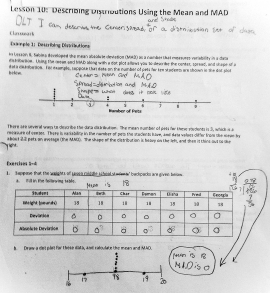 Lesson 10: Describing Distributions Using the Mean and MAD
OLT I can describe the center, spread, and shape of a distribution set of data
Classwork
Example 1: Describing Distributions
In Lesson 9, Sabina developed the mean absolute deviation (MAD) as a number that measures variability in a data
distribution. Using the mean and MAD along with a dot plot allows you to describe the center, spread, and shape of a
data distribution. For example, suppose that data on the number of pets for ten students are shown in the dot plot
below.
Center = mean and MAD
Spread = deviation and MAD
1 2 3 4 5 6 7 8 9 10
Number of Pets
There are several ways to describe the data distribution. The mean number of pets for these students is 3, which is a
measure of center. There is variability in the number of pets the students have, and data values differ from the mean by
about 2.2 pets on average (the MAD). The shape of the distribution is heavy on the left, and then it thins out to the
right.
Exercises 1–4
1. Suppose that the weights of seven middle school students' backpacks are given below.
a. Fill in the following table.
Mean is 18
Student Alan Beth Char Damon Elisha Fred Georgia
Weight (pounds) 18 18 18 18 18 18 18
Deviation 0 0 0 0 0 0 0
Absolute Deviation 0 0 0 0 0 0 0
b. Draw a dot plot for these data, and calculate the mean and MAD.
mean is 18
MAD is 0
16 17 18 19 20